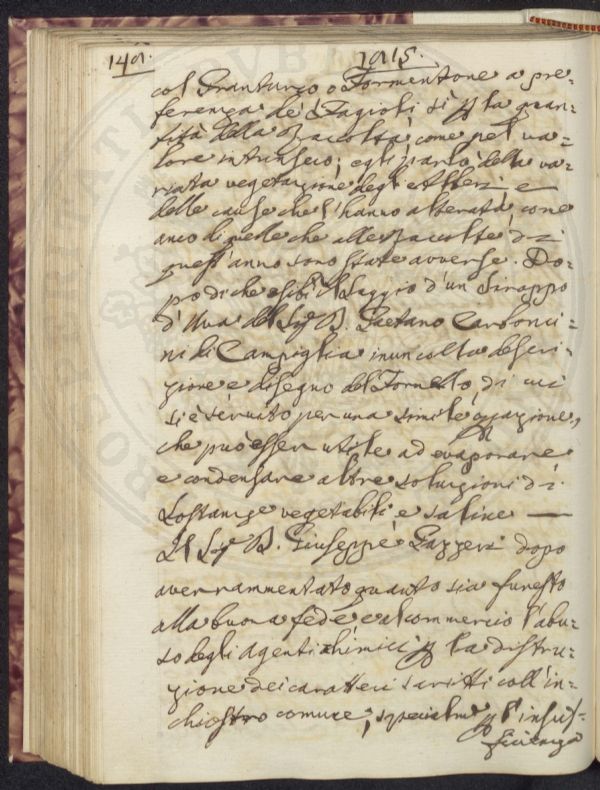 149. 1815.
col Granturco o Formentone a pre=
ferenza de' Fagioli sì p la quan=
tità della Raccolta, come pel va=
lore intrinseco; egli parlò della va=
riata vegetazione degli Alberi e
delle cause che l'hanno alterata come
anco di quelle che alle Raccolte di
quest'anno sono state avverse. Do=
po di che esibì il Saggio d'un Siroppo
d'Uva del Sig D. Gaetano Carbonci=
ni di Campiglia in un colla descri=
zione e disegno del Fornello di cui
si è servito per una simile opazione,
che può esser utile ad evaporare
e condensare altre soluzioni di
Sostanze vegetabili e saline —
Il Sig D. Giuseppe Gazzeri dopo
aver rammentato quanto sia funesto
alla buona fede e al commercio l'abu=
so degli Agenti chimici p la distru=
zione dei caratteri scritti coll'in=
chiostro comune; specialm p l'insuf=
ficienza